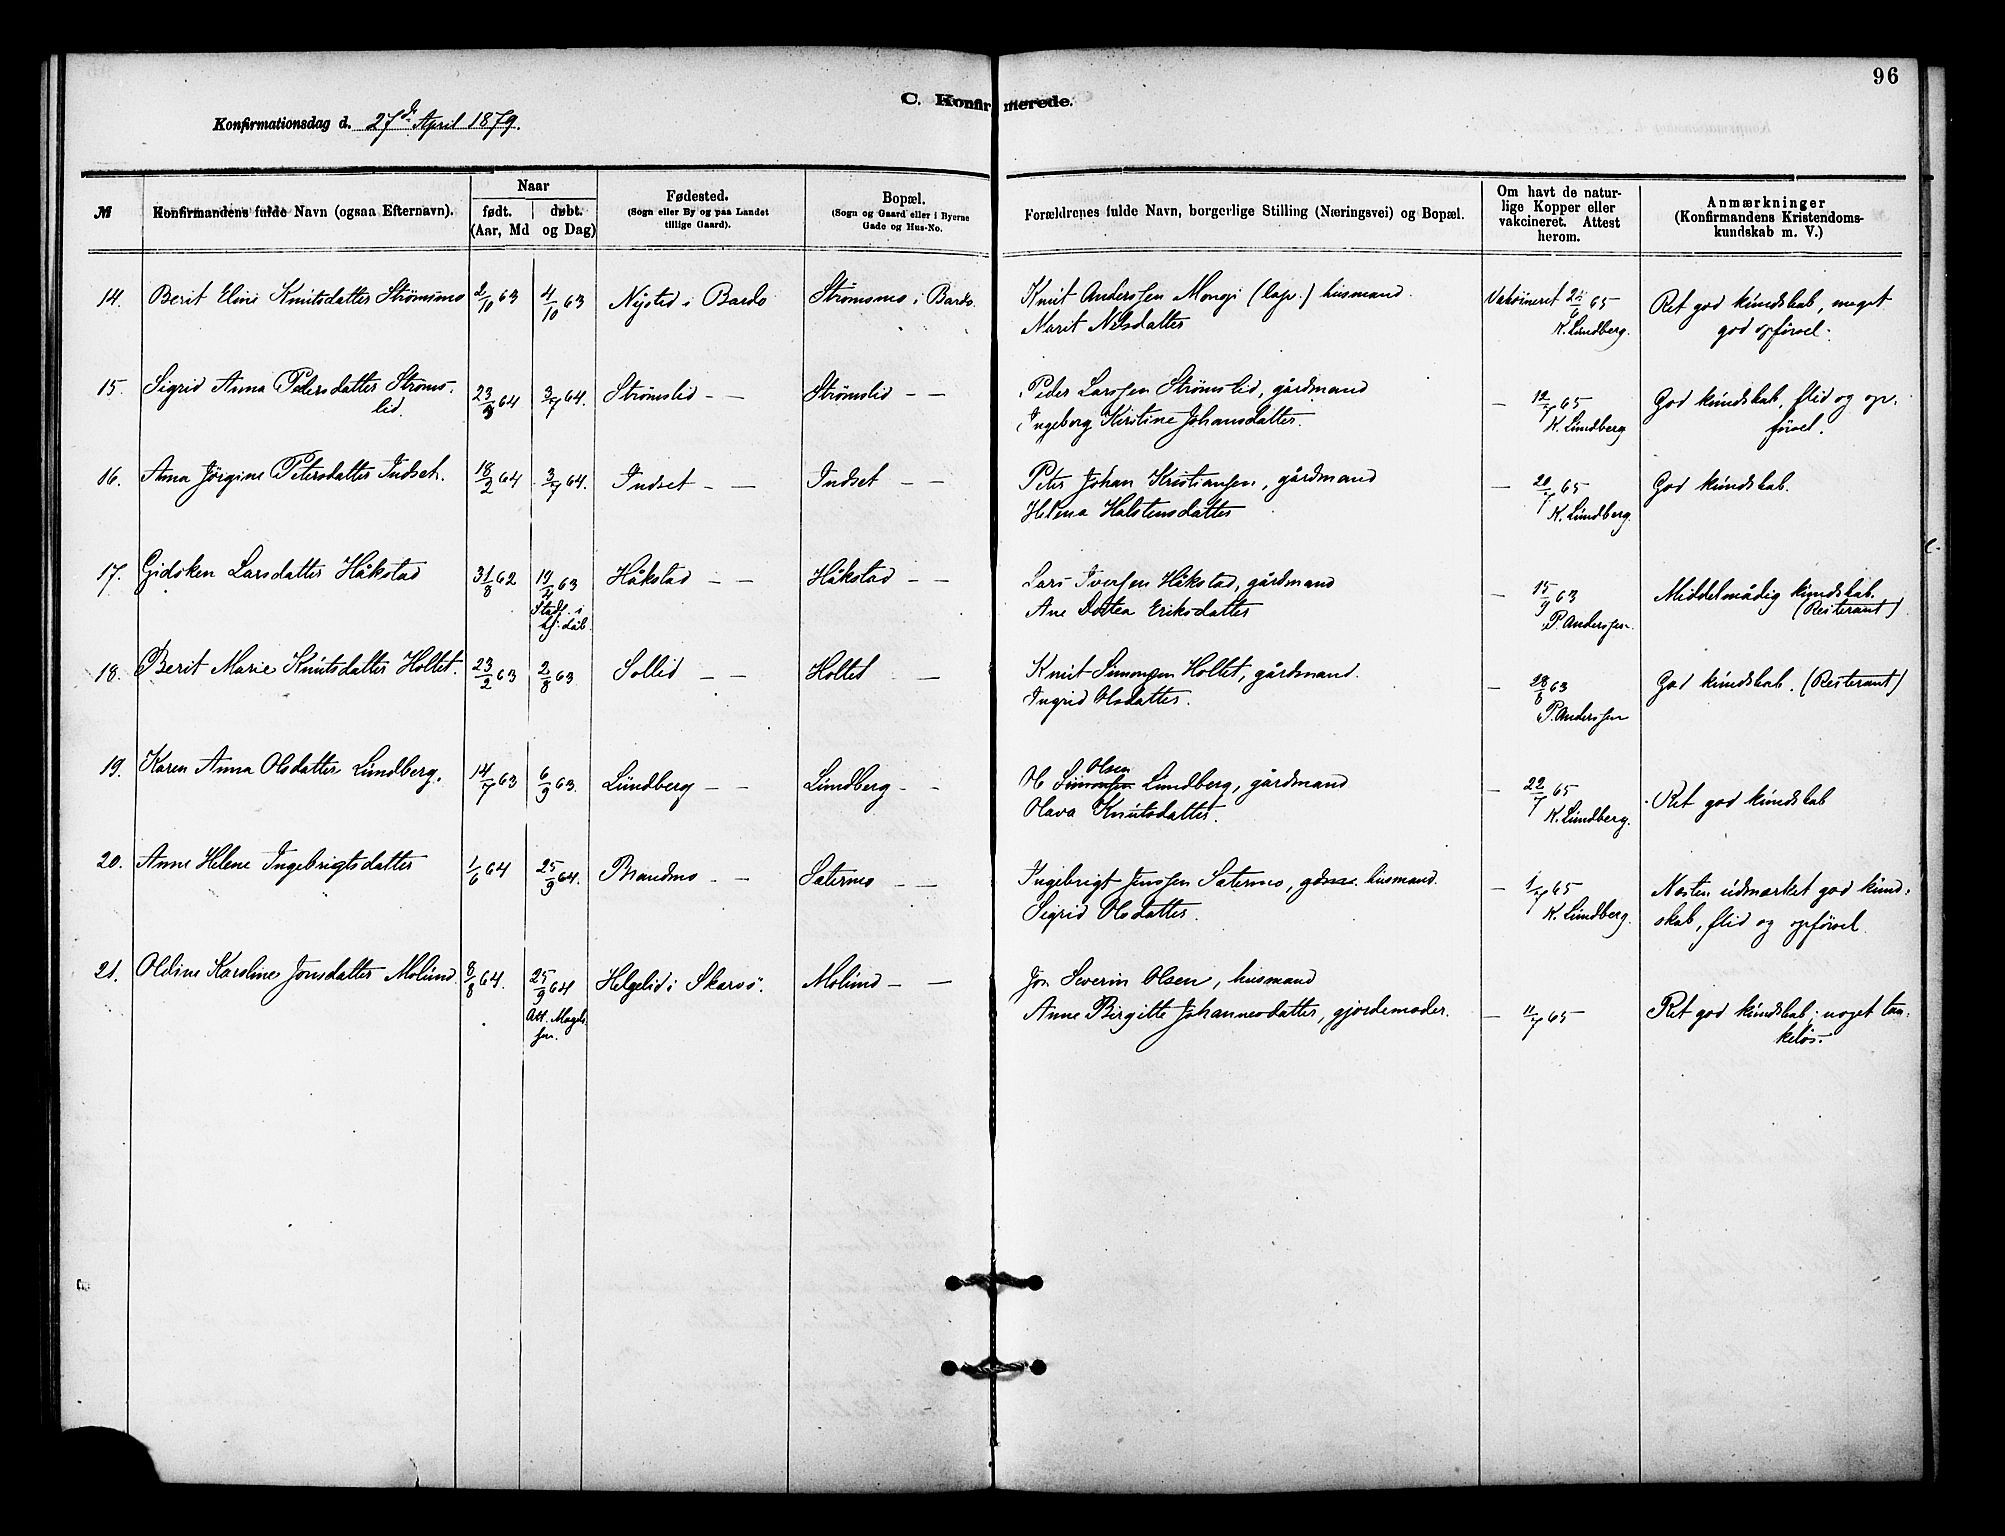 96
C. Konfirmerede.
Konfirmationsdag d. 27de April 1879.
№
Konfirmandens fulde Navn (ogsaa Efternavn).
Naar
født.
døbt.
(Aar, Md og Dag)
Fødested.
(Sogn eller By og paa Landet
tillige Gaard).
Bopæl.
(Sogn og Gaard eller i Byerne
Gade og Hus-No.
Forældrenes fulde Navn, borgerlige Stilling (Næringsvei) og Bopæl.
Om havt de natur-
lige Kopper eller
vakcineret. Attest
herom.
Anmærkninger
(Konfirmandens Kristendoms-
kundskab m. V.)
14. Berit Eline Knutsdatter Strømsmo 2/10 63 4/10 63 Nysted i Bardo Strømsmo i Bardo. Knut Anderssen Mongi (lap.) husmand. Vaksineret 65 Ret god kundskab, meget
Marit Nilsdatter K. Lundberg. god opførsel.
15. Sigrid Anna Pedersdatter Strøms- 23/ 64 3/7 64. Strømslid — — Strømslid — — Peder Larssen Strømslid, gårdmand — 12/7 65 God kundskab, flid og op-
lid. Ingeborg Kristine Johansdatter. K. Lundberg førsel.
16. Anna Jørgine Petersdatter Indset. 18/2 64 3/7 64. Indset — — Indset — — Peter Johan Kristiansen, gårdmand — 20/7 65 God kundskab.
Helena Halstensdatter K. Lundberg.
17. Gidsken Larsdatter Håkstad 31/8 62 19/4 63 Håkstad — — Håkstad — — Lars Iversen Håkstad, gårdmand — 15/9 63 Middelmådig kundskab.
Stadf. i Ane Dottea Eriksdatter P. Anderssen. (Resterant)
hj. dåb.
18. Berit Marie Knutsdatter Holtet. 23/2 63 2/8 63 Sollid — — Holtet — Knut Simonsen Holtet, gårdmand. — 28/8 63 God kundskab. (Resterant)
Ingrid Olsdatter. P. Anderssen
19. Karen Anna Olsdatter Lundberg. 14/7 63 6/9 63. Lundberg — — Lundberg — — Olsen
Ol Simonsen Lundberg, gårdmand — 22/7 65 Ret god kundskab
Olava Knutsdatter. K. Lundberg.
20. Anne Helene Ingebrigtsdatter 1/6 64 25/9 64. Brandmo — — Sætermo — — Ingebrigt Jenssen Sætermo, husmand. — 1/7 65 Næsten udmærket god kund-
Sigrid Olsdatter. K. Lundberg. skab, flid og opførsel.
21. Oldine Karoline Jonsdatter Molund 8/8 64. 25/9 64 Helgelid i Skarsø. Molund — — Jon Severin Olsen, husmand
Att. Anne Birgitte Johannesdatter, gjordemoder. — 11/7 65 Ret god kundskab; noget tan-
keløs.